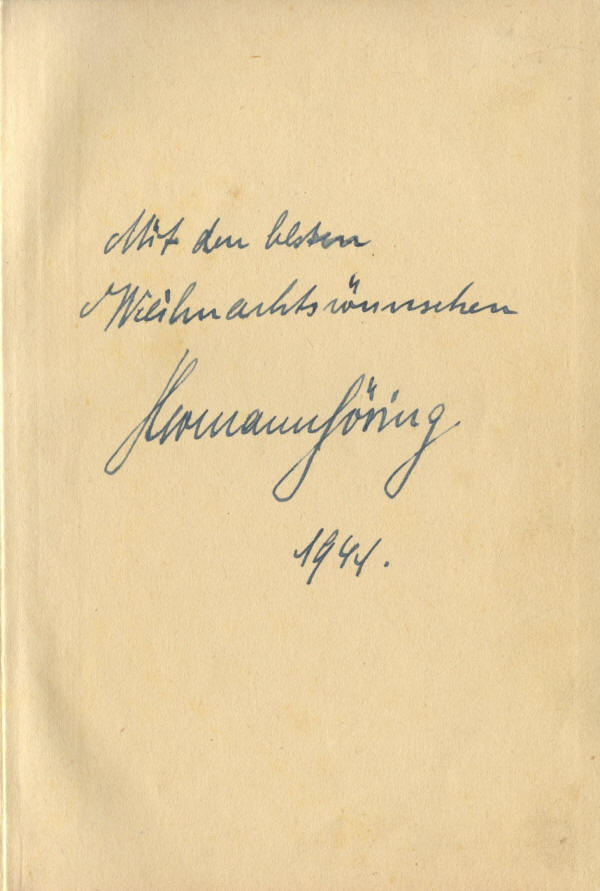 Mit den besten
Weihnachtswünschen
Hermann Göring
1944.